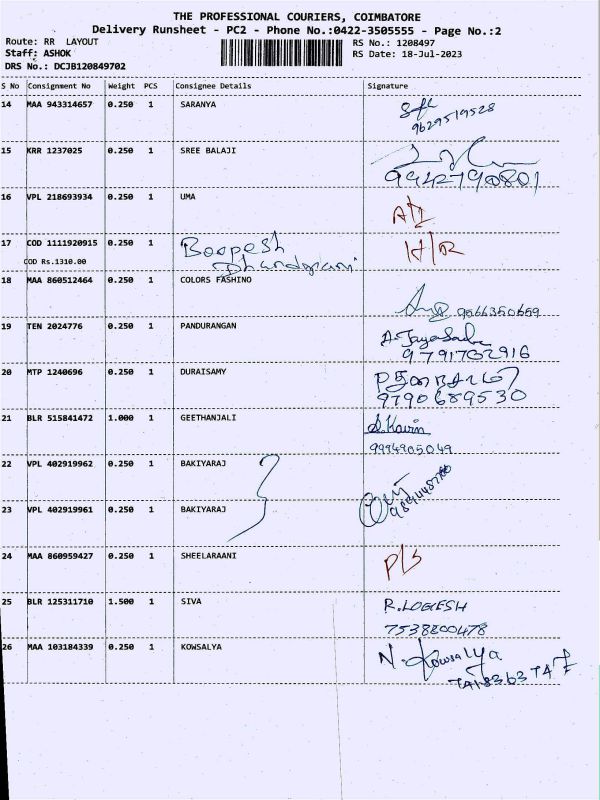 THE PROFESSIONAL COURIERS, COIMBATORE
Delivery Runsheet - PC2 - Phone No.:0422-3505555 - Page No.:2
Route: RR LAYOUT
RS No.: 1208497
Staff: ASHOK
RS Date: 18-Jul-2023
DRS No.: DCJB120849702
S No Consignment No Weight PCS Consignee Details Signature
14 MAA 943314657 0.250 1 SARANYA
9629519528
15 KRR 1237025 0.250 1 SREE BALAJI
9942790801
16 VPL 218693934 0.250 1 UMA
17 COD 1111920915 0.250 1 Boopesh H/R
COD Rs.1310.00
18 MAA 860512464 0.250 1 COLORS FASHINO
9566350659
19 TEN 2024776 0.250 1 PANDURANGAN
9791702916
20 MTP 1240696 0.250 1 DURAISAMY
9790689530
21 BLR 515841472 1.000 1 GEETHANJALI S.Kavin
9994905049
22 VPL 402919962 0.250 1 BAKIYARAJ
23 VPL 402919961 0.250 1 BAKIYARAJ
24 MAA 860959427 0.250 1 SHEELARAANI P/S
25 BLR 125311710 1.500 1 SIVA R.LOGESH
7538800478
26 MAA 103184339 0.250 1 KOWSALYA N. Kowsalya